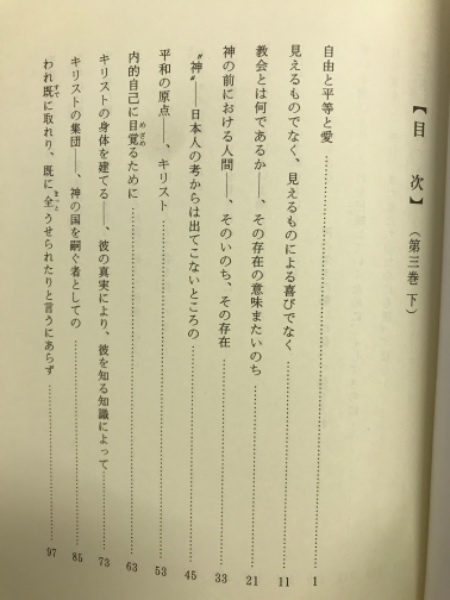 【目次】（第三巻 下）
自由と平等と愛……………………1
見えるものでなく、見えるものによる喜びでなく……………………11
教会とは何であるか――、その存在の意味またいのち……………………21
神の前における人間――、そのいのち、その存在……………………33
“神”――日本人の考からは出てこないところの……………………45
平和の原点――、キリスト……………………53
内的自己に目覚るために……………………63
キリストの身体を建てる――、彼の真実により、彼を知る知識によって……………………73
キリストの集団――、神の国を嗣ぐ者としての……………………85
われ既に取れり、既に全うせられたりと言うにあらず……………………97